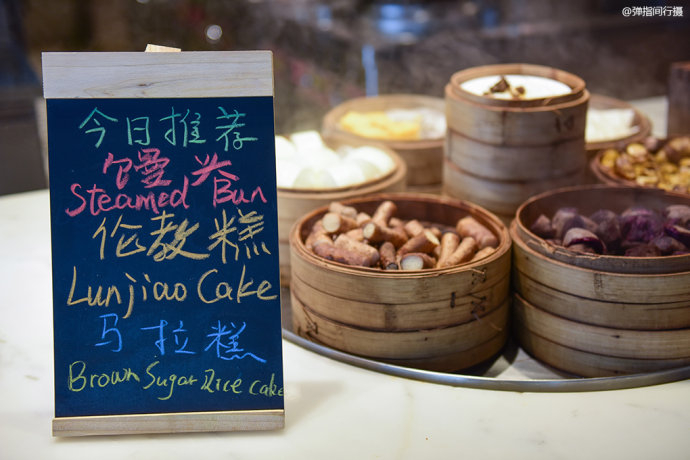 @弹指间行摄
今日推荐
馒头
Steamed Bun
伦教糕
Lunjiao Cake
马拉糕
Brown Sugar Rice cake